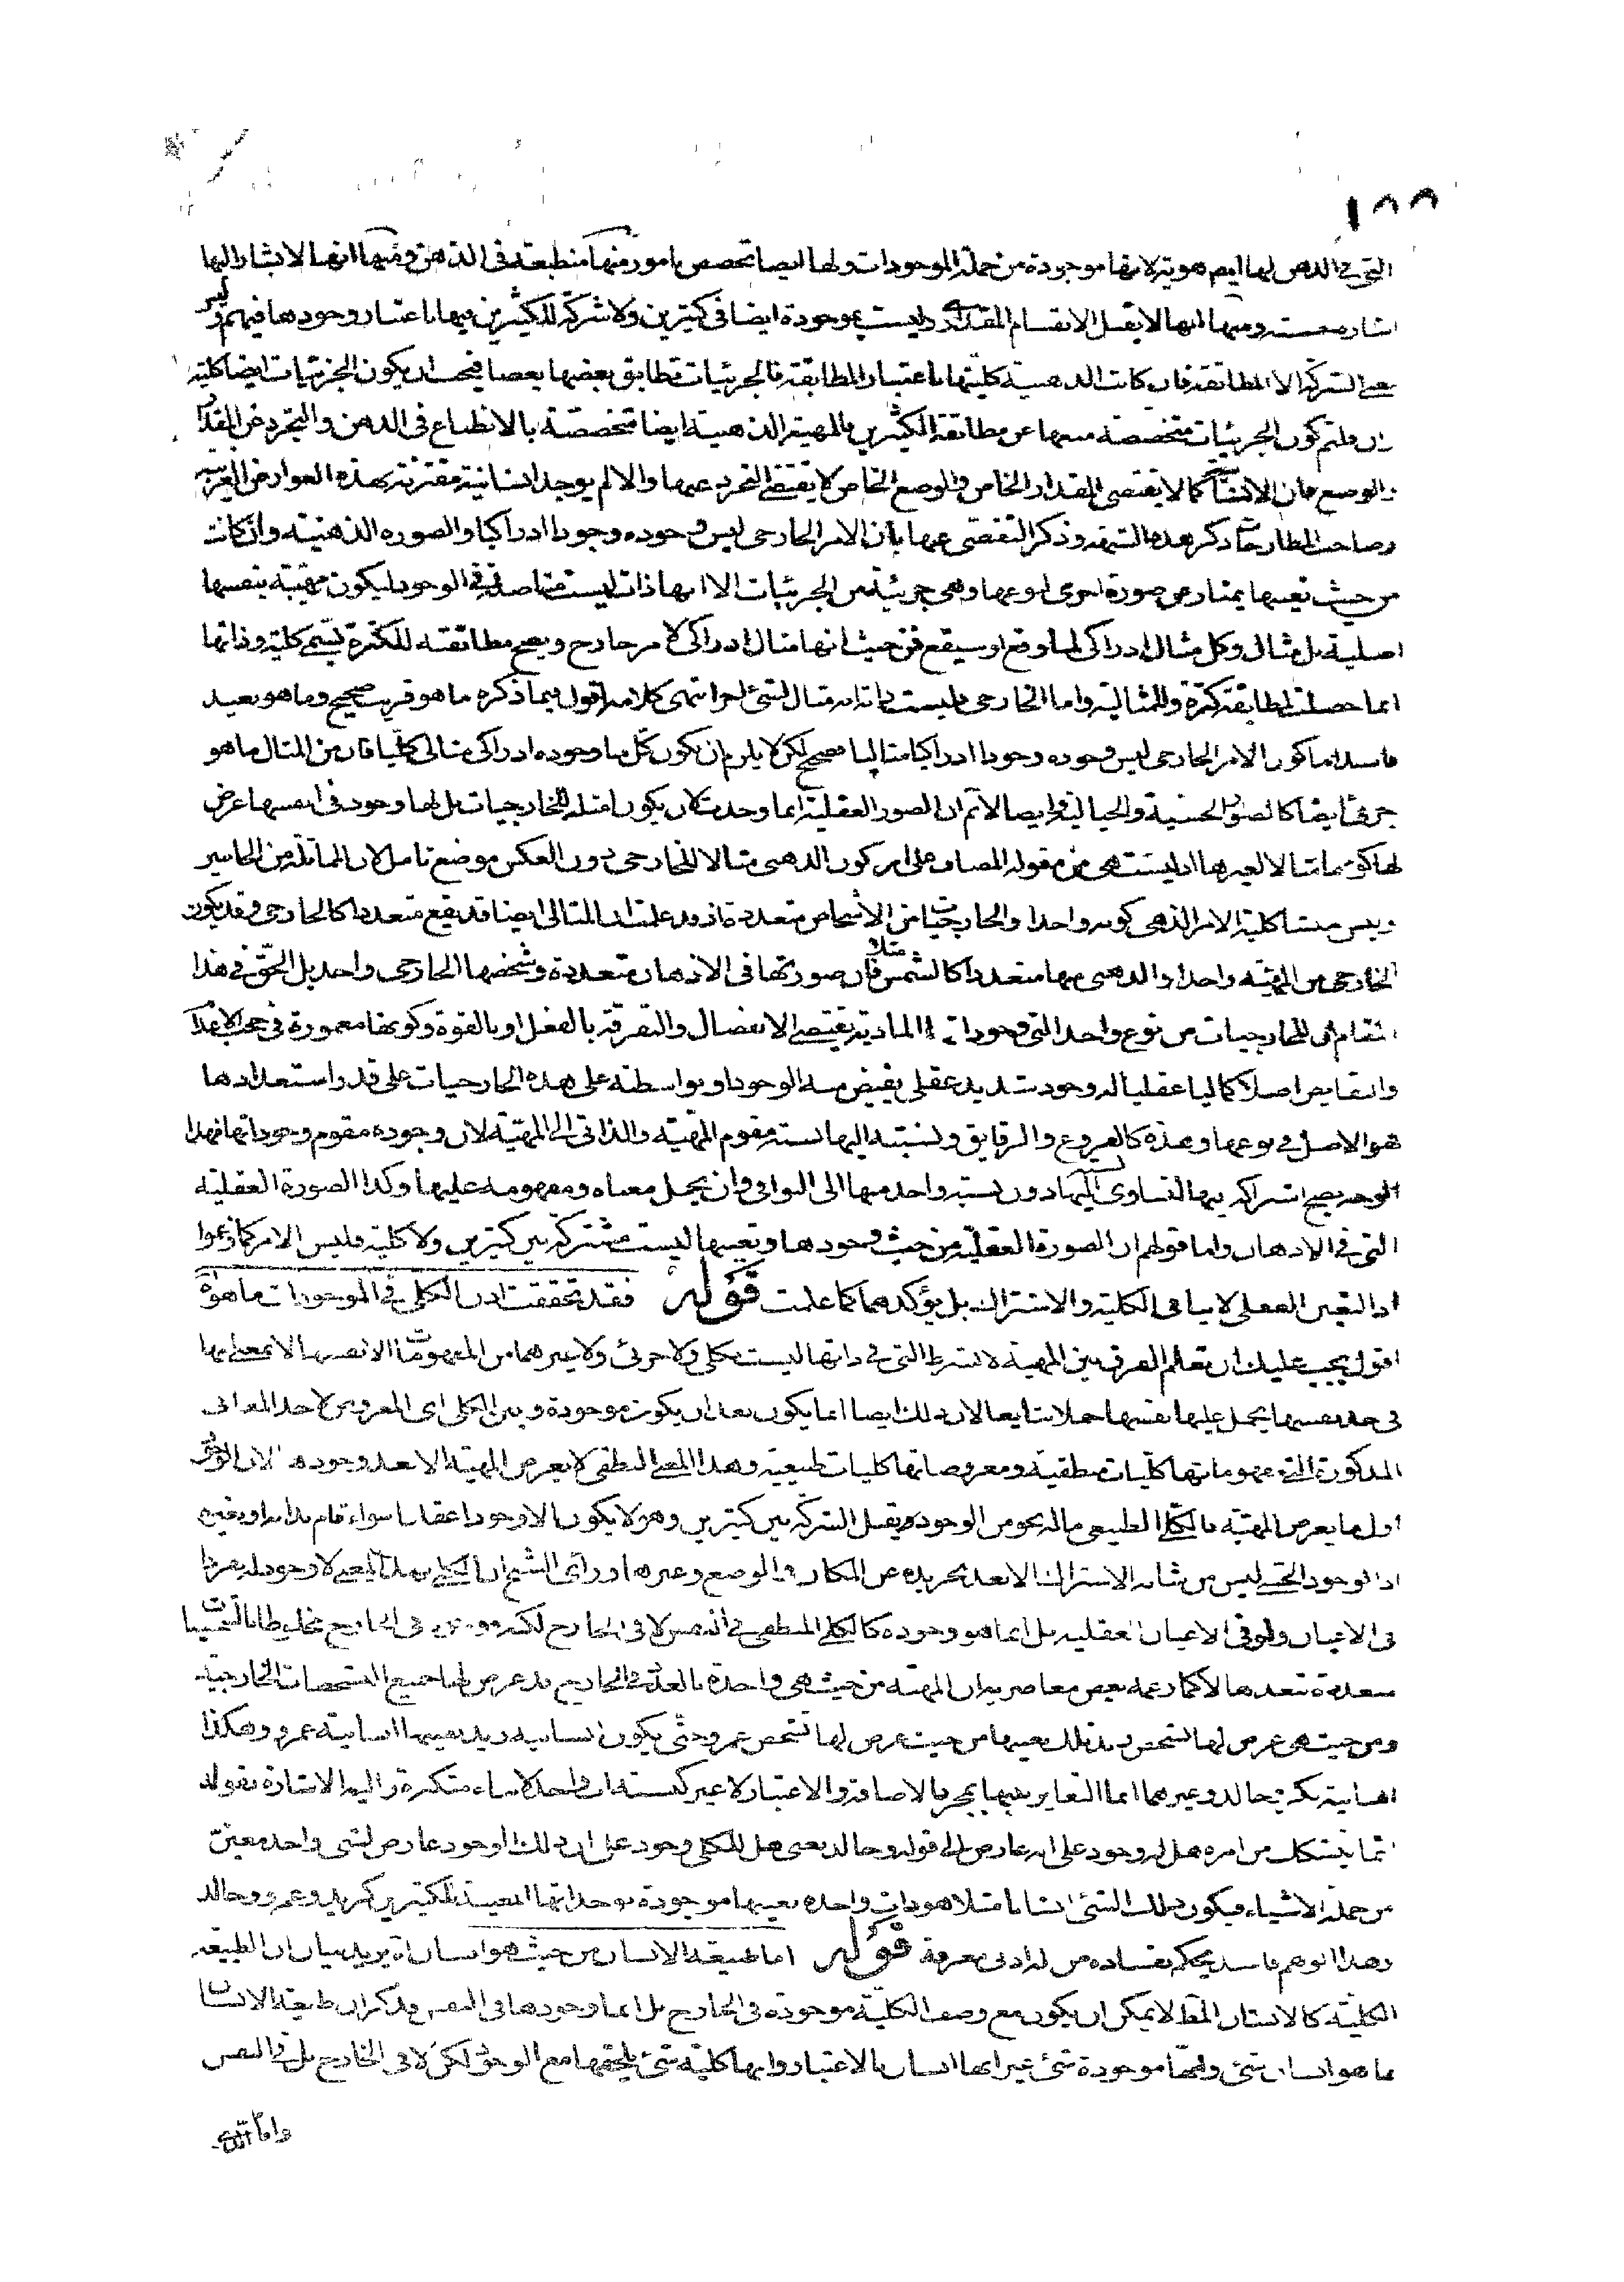 ١٨٨
التى فى الذهن لها ايضا هوية لانها موجودة من جملة الموجودات ولها ايضا تخصص بامور منها منطبعة فى الذهن ومنها انها لا يشار اليها
اشارة حسية ومنها انها لا يقبل الانقسام المقدارى وليست بموجودة ايضا فى كثيرين ولا شركة للكثيرين فيها باعتبار وجودها فيهم وليس
معنى الشركة الا المطابقة فان كانت الذهنية كليتها باعتبار المطابقة فالجزئيات تطابق بعضها بعضا فيجب ان يكون الجزئيات ايضا كلية
وان قلتم كون الجزئيات متخصصة منعها عن مطابقة الكثيرين فالمهية الذهنية ايضا متخصصة بالانطباع فى الذهن والتجرد عن المقدار
والوضع فان الانسان كما لا يقتضى المقدار الخاص والوضع الخاص لا يقتضى التجرد عنها والا لم يوجد انسانية مقترنة بهذه العوارض الغريبة
وصاحب المطارحات ذكر هذه الشبهة وذكر التفصى عنها بان الامر الخارجى ليس وجوده وجودا ادراكيا والصوره الذهنيه وان كانت
من حيث تعينها يمتاز عن صورة اخرى لنوعها وهى جزئية من الجزئيات الا انها ذات ليست متاصلة فى الوجود ليكون مهية بنفسها
اصلية بل مثال وكل مثال ادراكى لما وقع او سيقع فمن حيث انها مثال ادراكى لامر خارج ويصح مطابقته للكثرة يسمى كلية وذاتها
انما حصلت لمطابقة كثرة وللمثالية واما الخارجى فليست ذاته مثال لشئ اخر انتهى كلامه اقول فيما ذكره ما هو قريب صحيح وما هو بعيد
فاسد اما كون الامر الخارجى ليس وجوده وجودا ادراكيا مثاليا صحيح لكن لا يلزم ان يكون كل ما وجوده ادراكى مثالى كليا فان من المثال ما هو
جزئى ايضا كالصور الحسية والخيالية وايضا لا نم ان الصور العقلية انما وجدت لان يكون امثلة للخارجيات بل لها وجود فى انفسها عرض
لها كونها مثالا لغيرها اذ ليست هى من مقولة المضاف على ان كون الذهنى مثالا للخارجى دون العكس موضع تامل لان المماثلة من الجانبين
وليس منشا كلية الامر الذهنى كونه واحدا والخارجيات من الاشخاص متعددة اذ قد علمت ان المثالى ايضا قد يقع متعددا كالخارجى وقد يكون
الخارجى من المهية واحدا والذهنى منها متعددا كالشمس مثلا فان صورتها فى الاذهان متعددة وشخصها الخارجى واحد بل الحق فى هذا
المقام ان للخارجيات من نوع واحد التى وجوداتها المادية يقتضى الانفصال والتفرقة بالفعل او بالقوة وكونها مغمورة فى حجب الاعدام
والنقايص اصلا كماليا عقليا له وجود شديد عقلى يفيض منه الوجود او بواسطته على هذه الخارجيات على قدر استعدادها
هو الاصل فى نوعها وهذه كالفروع والرقايق ونسبته اليها نسبة مقوم المهية والذاتى الى المهية لان وجوده مقوم وجوداتها فبهذا
الوجه يصح اشتراكه بينها لتساوى نسبته اليها دون نسبة واحد منها الى البواقى وان يحمل معناه ومفهومه عليها وكذا الصورة العقلية
التى فى الاذهان واما قولهم ان الصورة العقلية من حيث وجودها وتعينها ليست مشتركة بين كثيرين ولا كلية فليس الامر كما زعموا
اذ التعين العقلى لا ينافى الكلية والاشتراك بل يؤكدهما كما علمت قوله فقد تحققت اذن الكلى فى الموجودات ما هو اه
اقول يجب عليك ان تعلم الفرق بين المهية لا بشرط التى فى ذاتها ليست بكلى ولا جزئى ولا غيرهما من المفهومات الا نفسها لا بمعنى انها
فى حد نفسها يحمل عليها نفسها حملا شايعا لان ذلك ايضا انما يكون بعد ان يكون موجودة وبين الكلى اى المعروض لاحد المعانى
المذكورة التى مفهوماتها كليات منطقية ومعروضاتها كليات طبيعية وهذا المعنى المنطقى لا يعرض المهية الا بعد وجودها لان الوجود
اول ما يعرض المهية فالكلى الطبيعى ما له نحو من الوجود يقبل الشركة بين كثيرين وهو لا يكون الا وجودا عقليا سواء قام بذاته او بغيره
اذ الوجود الحسى ليس من شانه الاشتراك الا بعد تجريده عن المكان والوضع وغيرها وراى الشيخ ان الكلى بهذا المعنى لا وجود له مفردا
فى الاعيان ولو فى الاعيان العقلية بل انما هو وجوده كالكلى المنطقى فى الذهن لا فى الخارج لكنه موجود فى الخارج مخلوطا بالتعينات
متعددة بتعددها لا كما زعمه بعض معاصريه ان المهية من حيث هى واحدة بالعدد فى الخارج قد عرض لها جميع التشخصات الخارجية
ومن حيث هى عرض لها تشخص زيد تلك بعينها من حيث عرض لها تشخص عمرو حتى يكون انسانية زيد بعينها انسانية عمرو وهكذا
انسانية بكر وخالد وغيرهما انما التغاير بينها بمجرد الاضافة والاعتبار لا غير كنسبة اب واحد لابناء متكثرة واليه الاشارة بقوله
انما يشكل من امره هل له وجود على انه عارض الى قوله وخالد يعنى هل للكلى وجود على ان ذلك الوجود عارض لشئ واحد معين
من جملة الاشياء فيكون ذلك الشئ انسانا مثلا هو ذات واحده بعينها موجودة بوحدتها المعينة للكثيرين كزيد وعمرو وخالد
وهذا الوهم فاسد يحكم بفساده من له ادنى معرفة قوله اما طبيعة الانسان من حيث هو انسان اه يريد بيان ان الطبيعة
الكلية كالانسان الكلى لا يمكن ان يكون مع وصف الكلية موجودة فى الخارج بل انما وجودها فى النفس فذكر ان طبيعة الانسان
بما هو انسان شئ وانها موجودة شئ غير انها انسان بالاعتبار وانها كلية شئ يلحقها مع الوجود لكن لا فى الخارج بل فى النفس